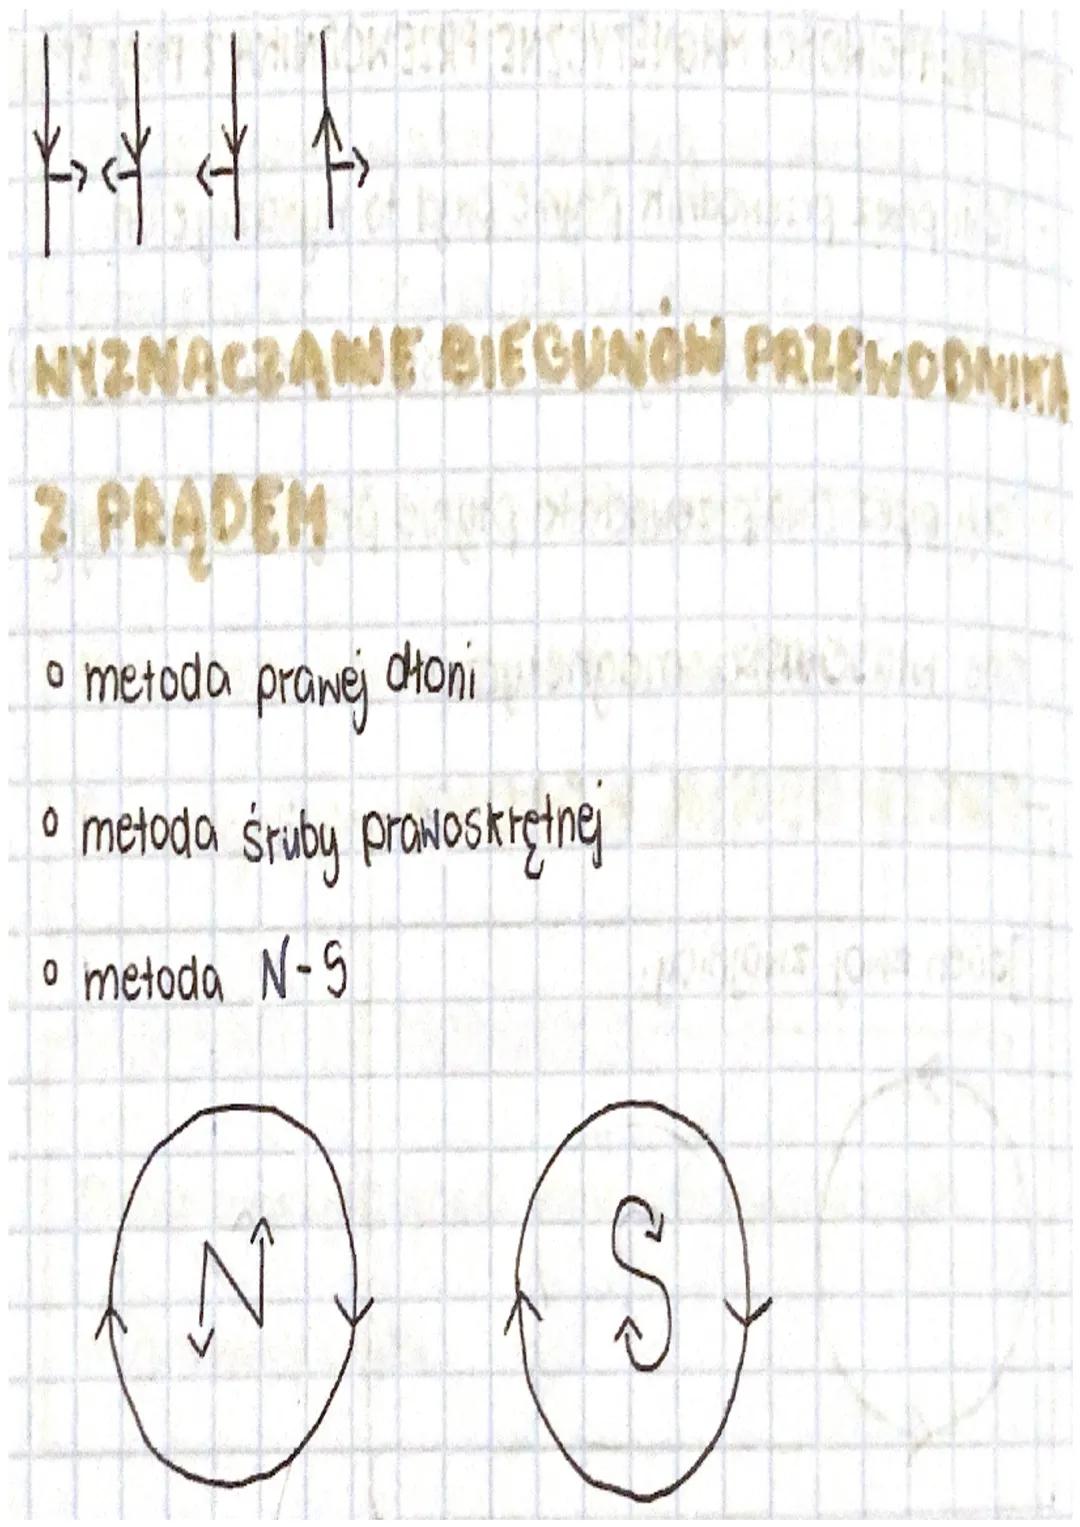 WYZNACZANIE BIEGUNÓW PRZEWODNIKA
Z PRĄDEM
o metoda prawej dłoni
o metoda śruby prawoskrętnej
o metoda N-S
N S